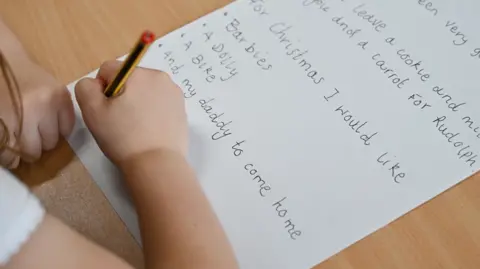 very
leave a cookie and
you and a carrot for Rudolph
for Christmas I would like
• Barbies
• A Dolly
• A Bike
and my daddy to come home